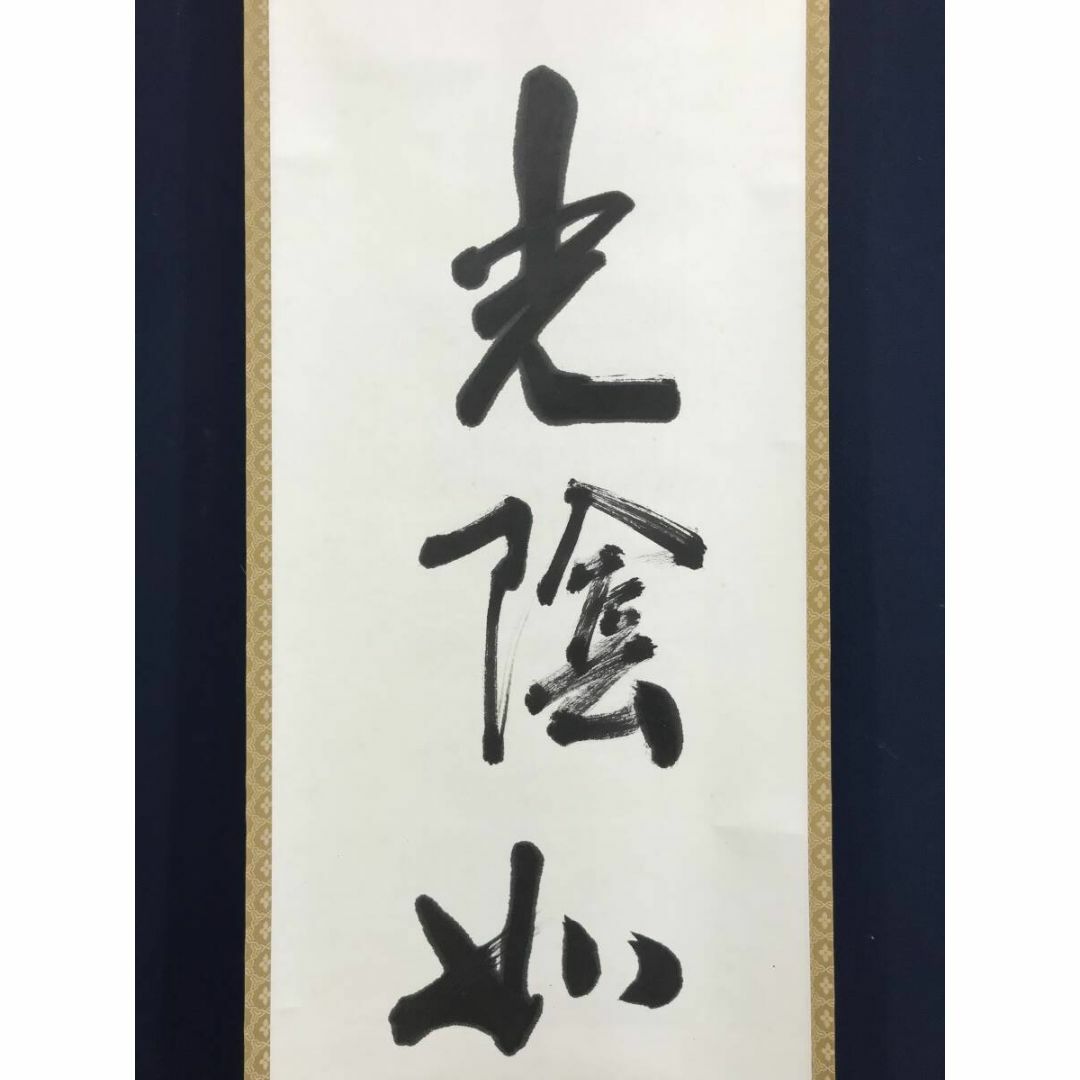 光陰如